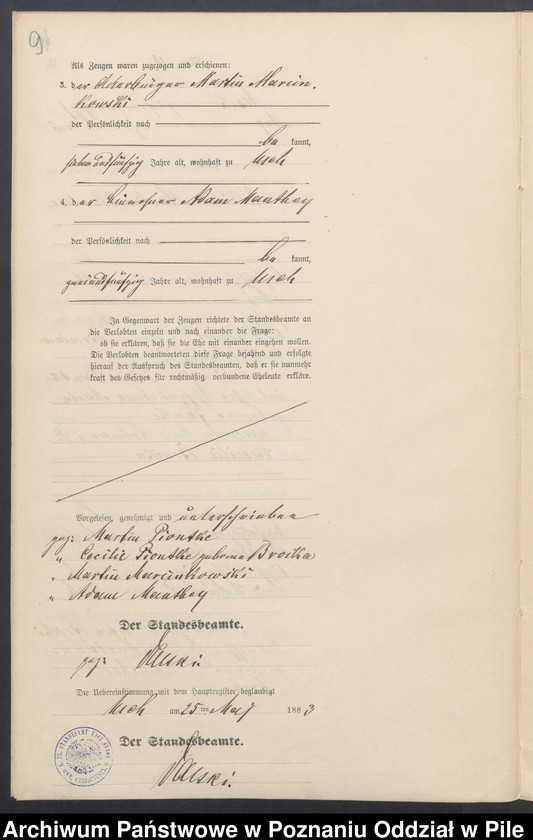 9
Als Zeugen waren zugezogen und erschienen:
3. der Ackerbürger Martin Marcin-
kowski
der Persönlichkeit nach
be kannt,
siebenundfünfzig Jahre alt, wohnhaft zu Usch
4. der Einwohner Adam Manthey
der Persönlichkeit nach
be kannt,
zweiundfünfzig Jahre alt, wohnhaft zu Usch
In Gegenwart der Zeugen richtete der Standesbeamte an
die Verlobten einzeln und nach einander die Frage:
ob sie erklären, daß sie die Ehe mit einander eingehen wollen.
Die Verlobten beantworteten diese Frage bejahend und erfolgte
hierauf der Ausspruch des Standesbeamten, daß er sie nunmehr
kraft des Gesetzes für rechtmäßig verbundene Eheleute erkläre.
Vorgelesen, genehmigt und unterschrieben
gez: Martin Piontke
" Cecilie Piontke geborene
" Martin Marcinkowski
" Adam Manthey
Der Standesbeamte.
gez:
Die Uebereinstimmung mit dem Hauptregister beglaubigt
Usch am 25ten Mai 1883
Der Standesbeamte.
Archiwum Państwowe w Poznaniu Oddział w Pile